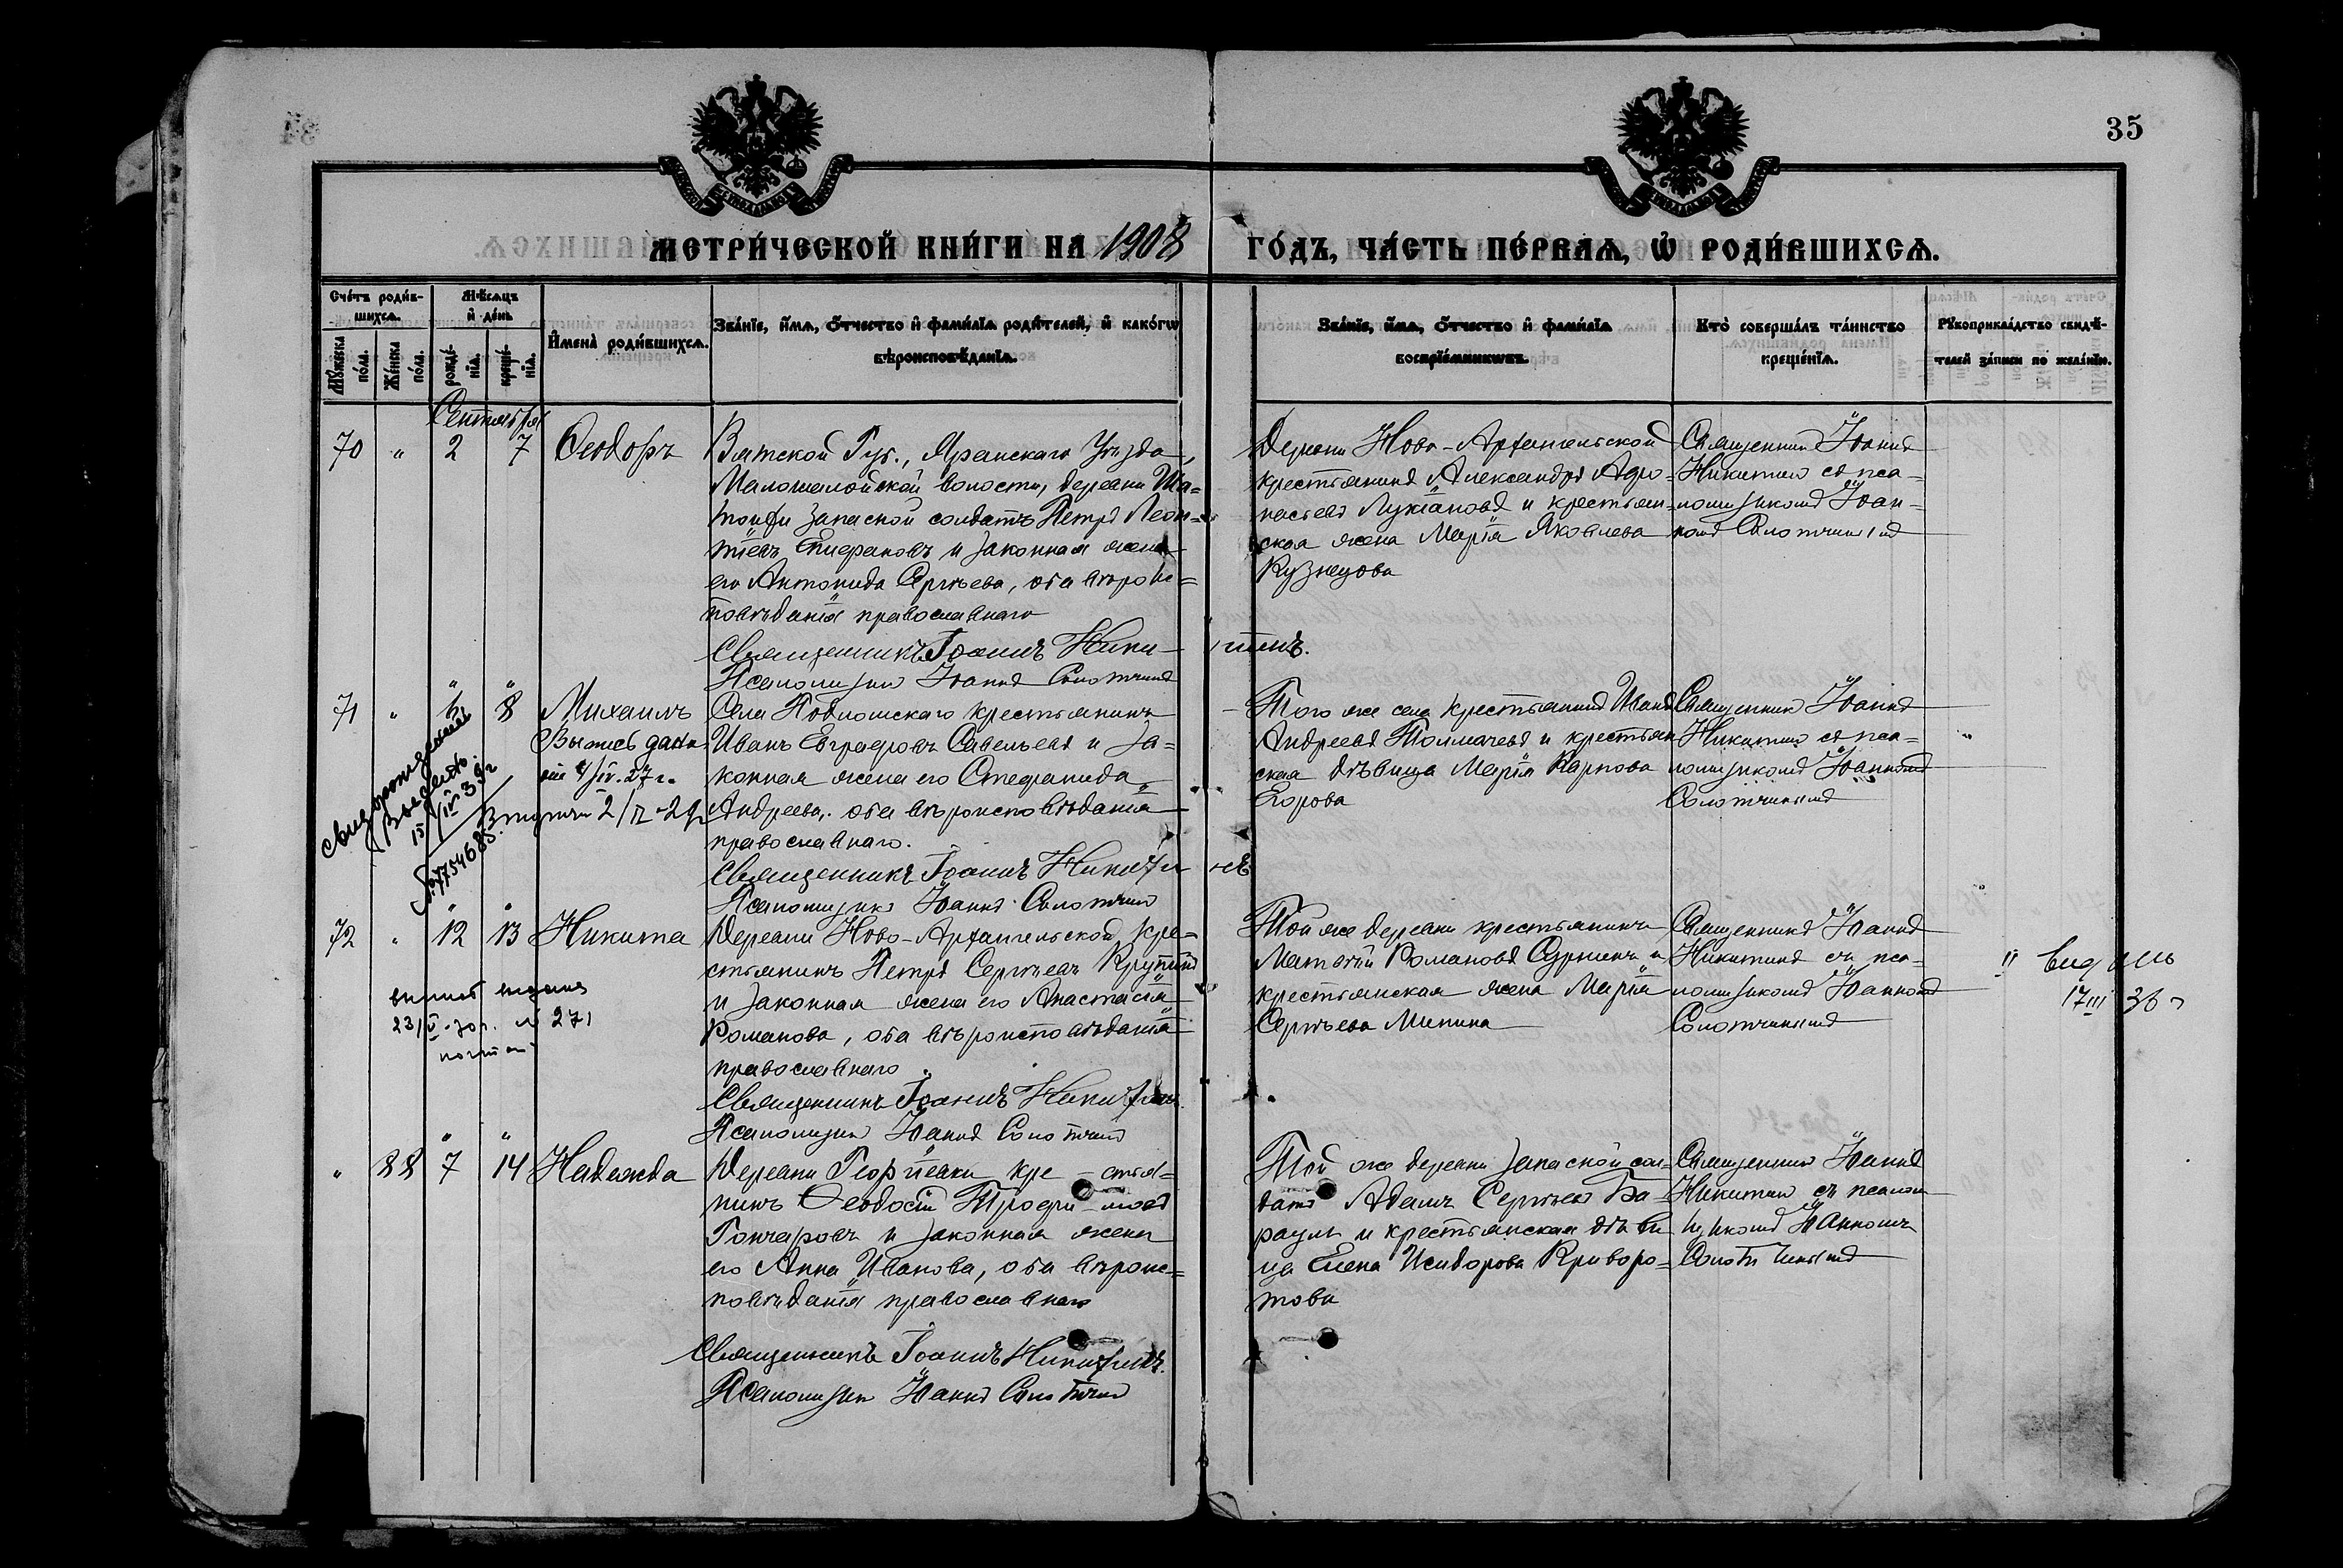 35
МЕТРИЧЕСКОЙ КНИГИ НА 1908 ГОДЪ, ЧАСТЬ ПЕРВАЯ, Ѿ РОДИВШИХСЯ.
Счетъ родив-
шихся.
Мѣсяцъ
и день
Мужеска
пола.
Женска
пола.
рожде-
нія.
креще-
нія.
Имена родившихся.
Званіе, имя, отчество и фамилія родителей, и какого
вѣроисповѣданія.
Званіе, имя, отчество и фамилія
воспріемниковъ.
Кто совершалъ таинство
крещенія.
Рукоприкладство свидѣ-
телей записи по желанію.
Сентября
70 " 2 7 Ѳеодоръ
Вятской Губ., Яранскаго Уѣзда,
волости, деревни Ша-
запасной солдатъ Петръ Леон-
тіевъ Епифановъ и законная жена
его Антонида Сергѣева, оба вѣроис-
повѣданія православнаго
Священникъ Іоаннъ Никитинъ.
Псаломщикъ Іоаннъ Солотчинъ
Деревни Ново-Архангельской
крестьянинъ Александръ Афо-
насьевъ Лукіановъ и крестьян-
ская жена Марія Яковлева
Кузнецова
Священникъ Іоаннъ
Никитинъ съ пса-
ломщикомъ Іоан-
номъ Солотчинымъ
71 " 6 8 Михаилъ
Выпись дана
4/IV-27 г.
Вторич 2/ -29
свид. о рождении
выслано.
15/IV 39 г
775468
Села крестьянинъ
Иванъ Евграфовъ Савельевъ и за-
конная жена его Стефанида
Андреева, оба вѣроисповѣданія
православнаго.
Священникъ Іоаннъ Никитинъ
Псаломщикъ Іоаннъ Солотчинъ
Того же села крестьянинъ Иванъ
Андреевъ Толмачевъ и крестьян
ская дѣвица Марія Карпова
Егорова
Священникъ Іоаннъ
Никитинъ съ пса-
ломщикомъ Іоанномъ
Солотчинымъ
72 " 12 13 Никита
выпись выдана
23/V-30 г. № 271
Деревни Ново-Архангельской кре-
стьянинъ Петръ Сергѣевъ Крупинъ
и законная жена его Анастасія
Романова, оба вѣроисповѣданія
православнаго.
Священникъ Іоаннъ Никитинъ
Псаломщикъ Іоаннъ Солотчинъ
Той же деревни крестьянинъ
Матвѣй Романовъ и
крестьянская жена Марія
Сергѣева Минина
Священникъ Іоаннъ
Никитинъ съ пса-
ломщикомъ Іоанномъ
Солотчинымъ
17 III 36 г
" 88 7 14 Надежда
Деревни Георгіевки кре-стья-
нинъ Ѳеодосій Трофи-мовъ
Гончаровъ и законная жена
его Анна Иванова, оба вѣроис-
повѣданія православнаго
Священникъ Іоаннъ Никитинъ.
Псаломщикъ Іоаннъ Солотчинъ
Той же деревни запасной сол-
датъ Адамъ Сергѣевъ Ба-
рауля и крестьянская дѣви
ца Елена Исидорова Криворо-
това
Священникъ Іоаннъ
Никитинъ съ псалом
щикомъ Іоанномъ
Солотчинымъ